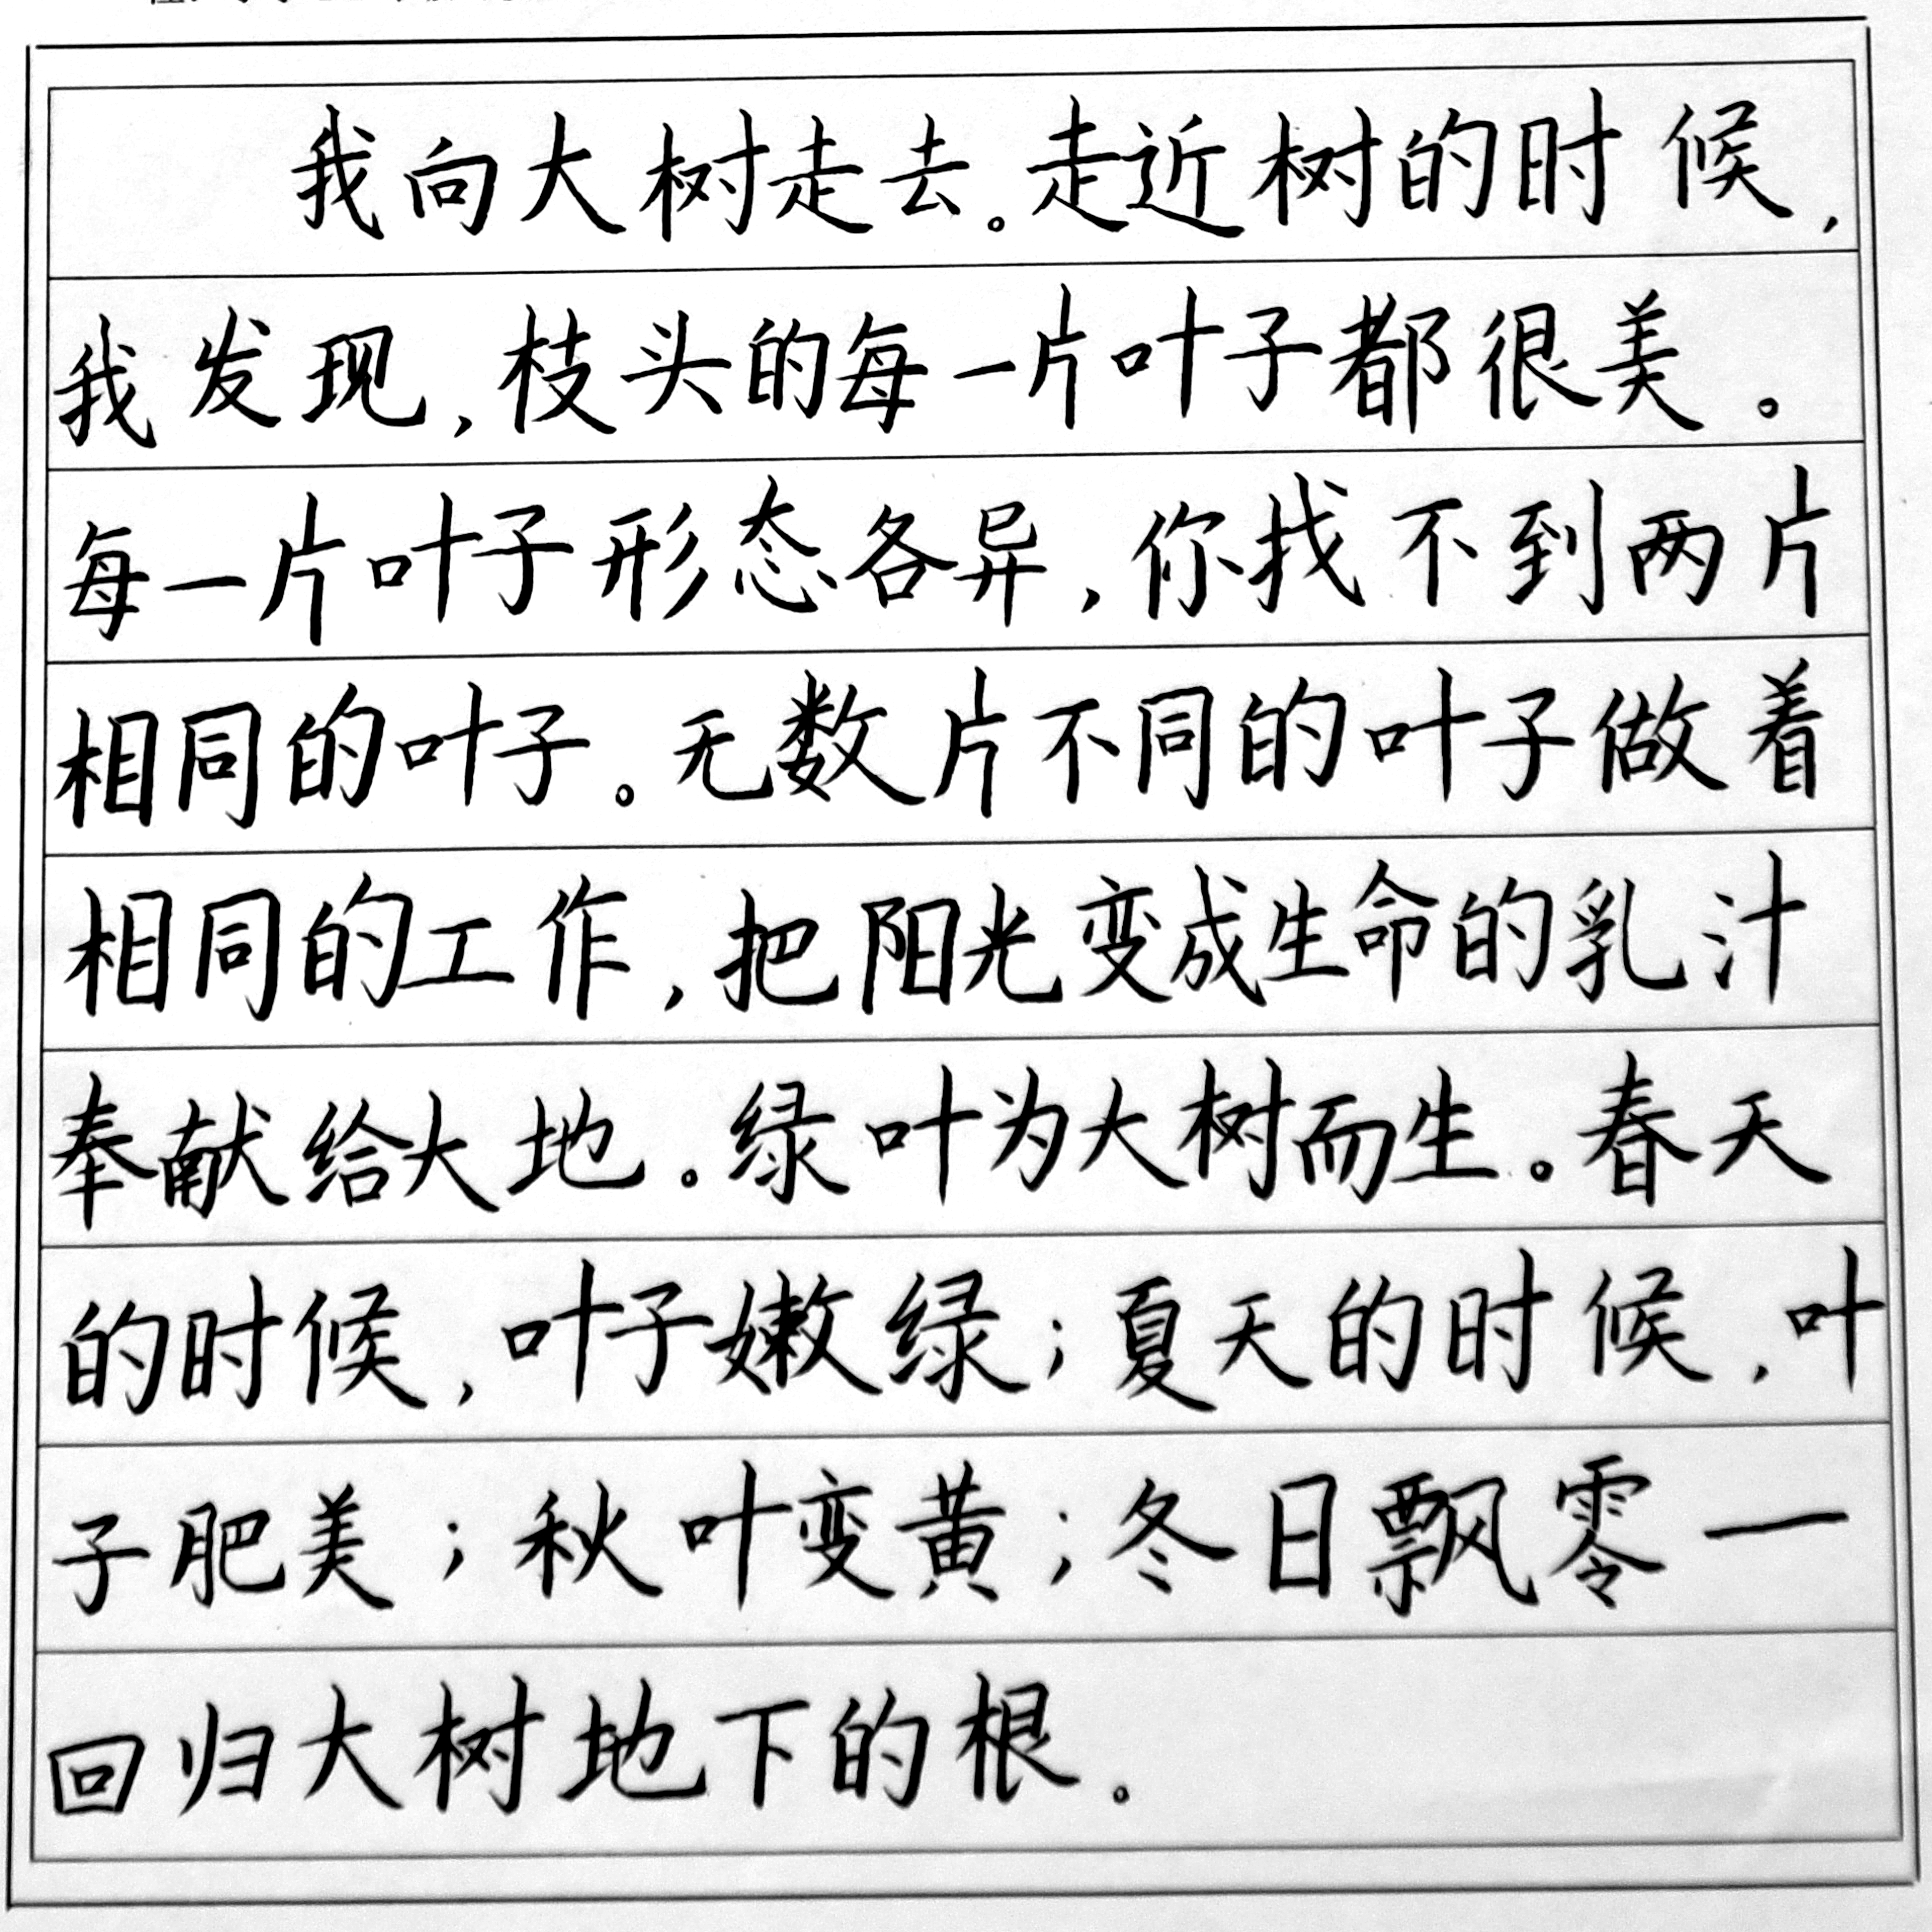 我向大树走去。走近树的时候，
我发现，枝头的每一片叶子都很美。
每一片叶子形态各异，你找不到两片
相同的叶子。无数片不同的叶子做着
相同的工作，把阳光变成生命的乳汁
奉献给大地。绿叶为大树而生。春天
的时候，叶子嫩绿；夏天的时候，叶
子肥美；秋叶变黄；冬日飘零—
回归大树地下的根。